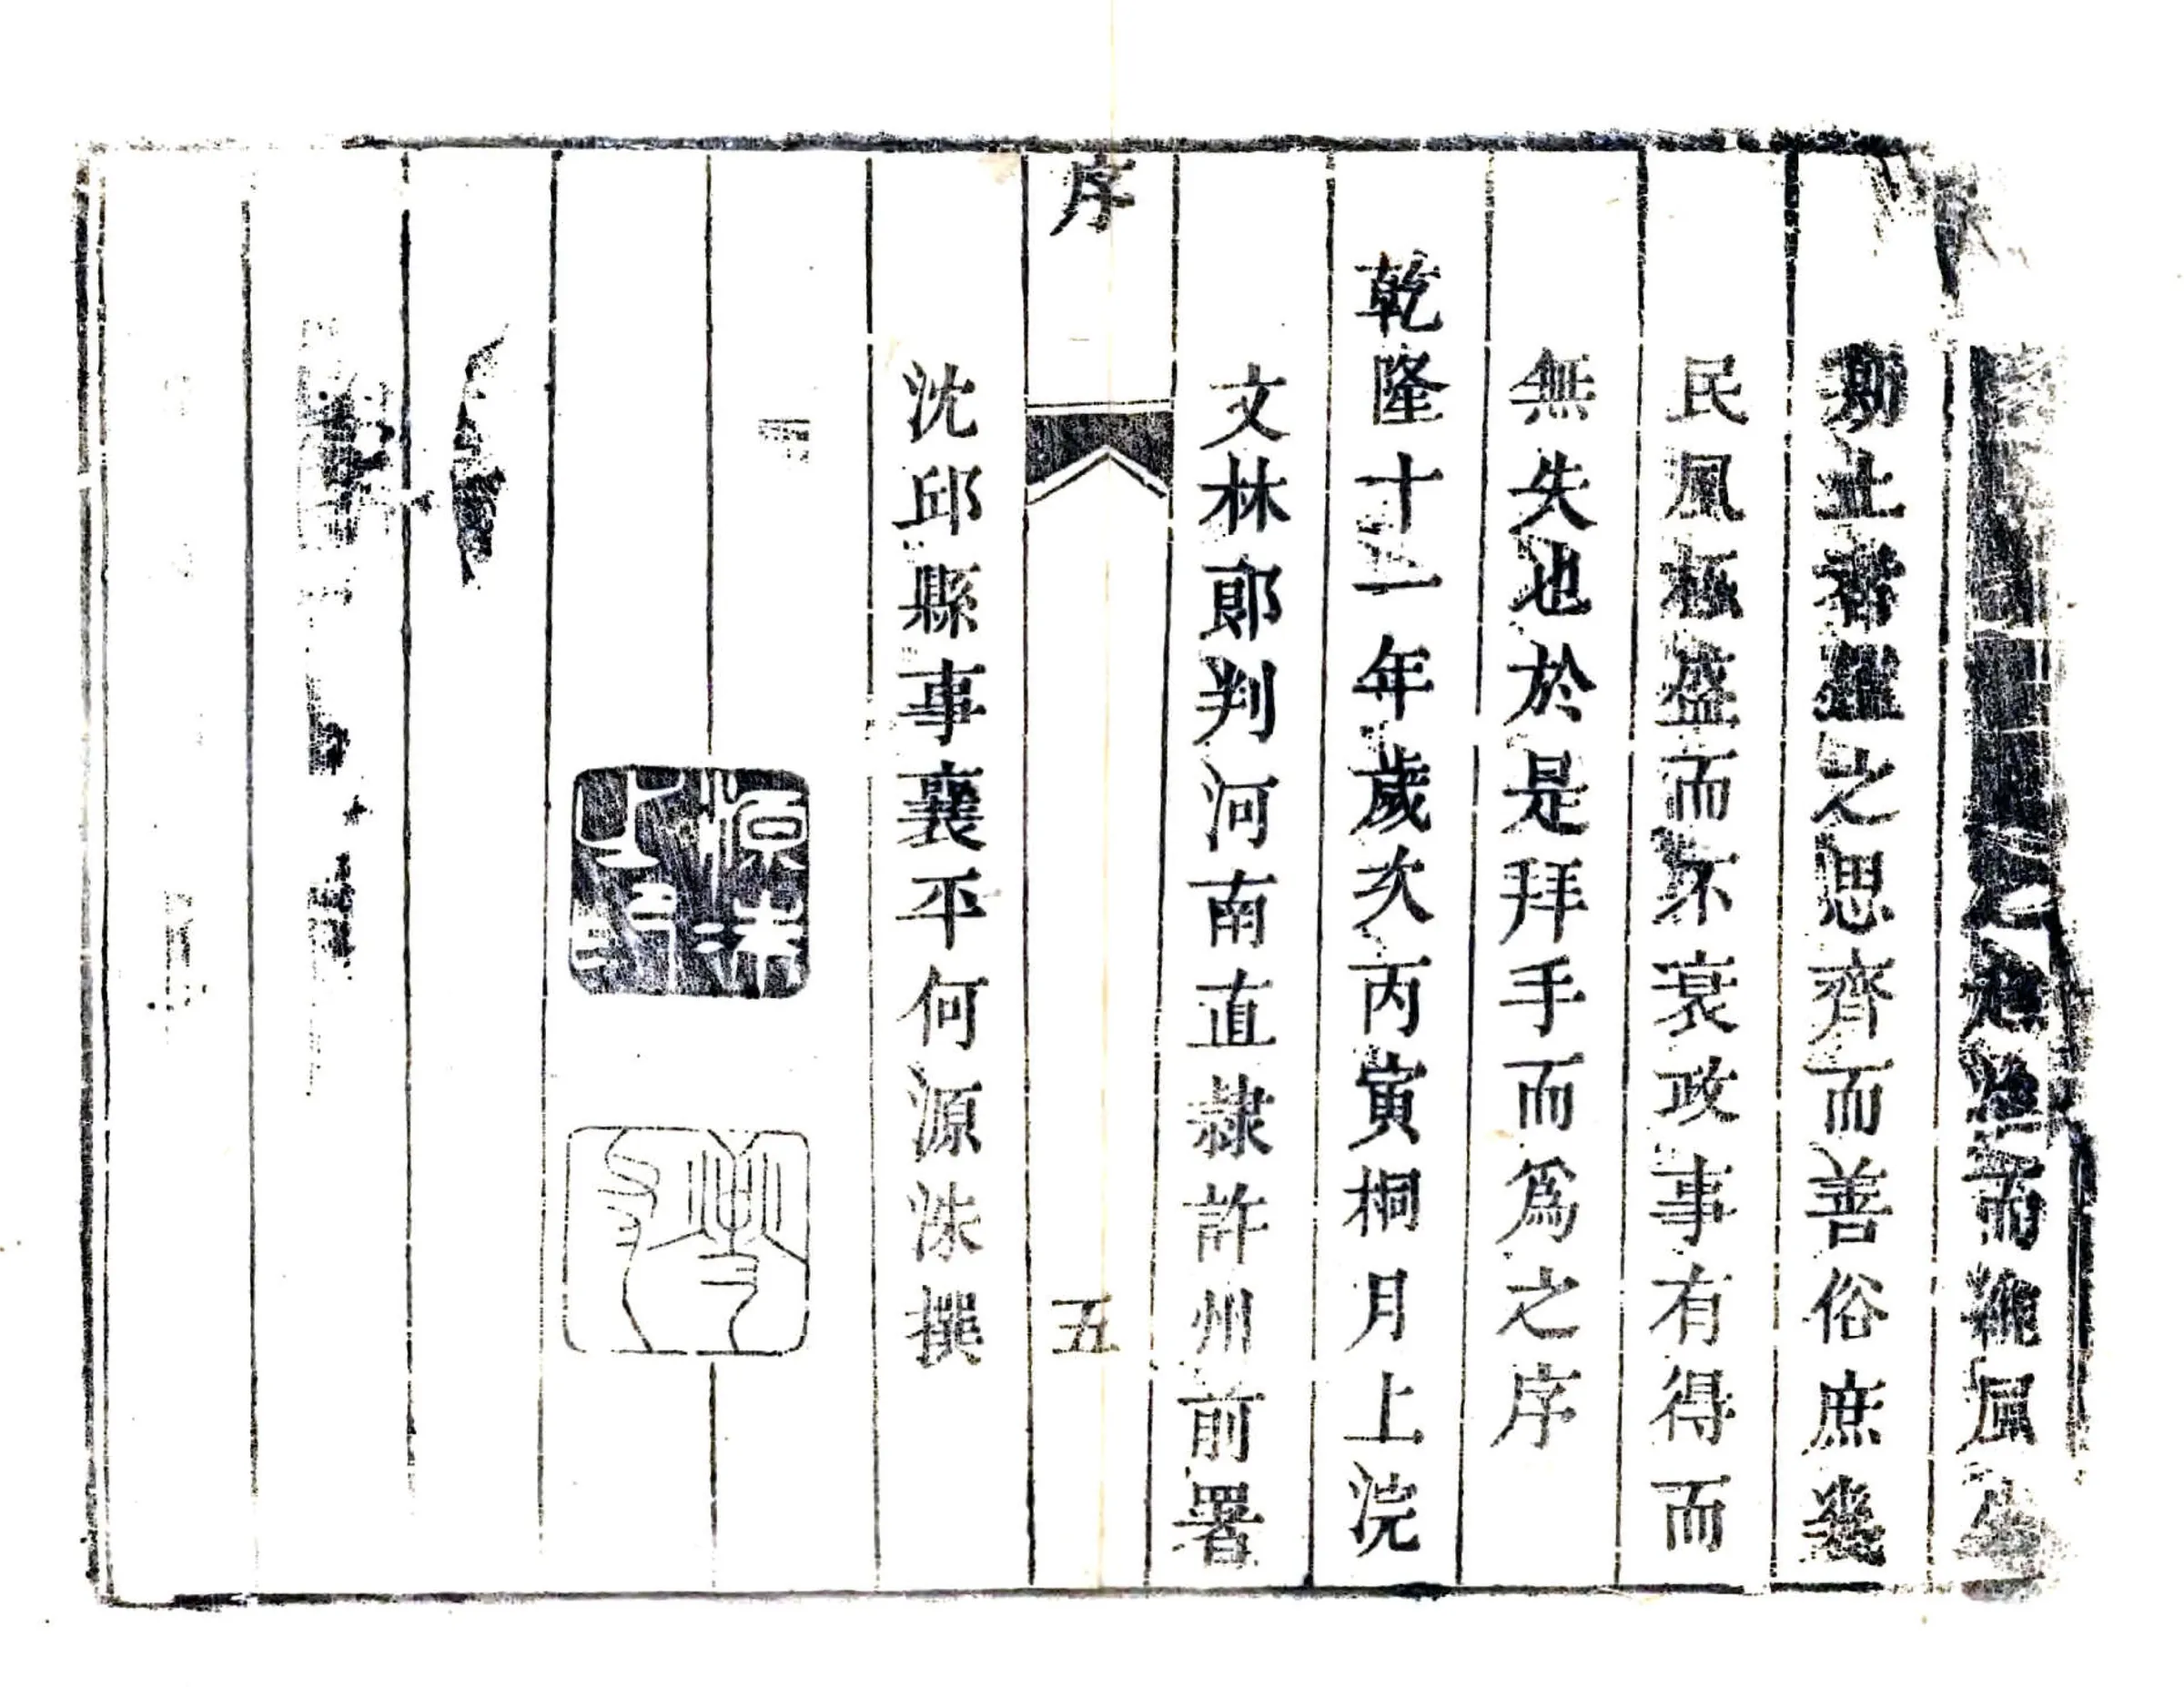 之
而
風
止
之思齊而善俗庶幾
民風極盛而不衰政事有得而
無失也於是拜手而爲之序
乾隆十一年歲次丙寅桐月上浣
文林郎判河南直隸許州前署
序
五
沈邱縣事襄平何源洙撰
源洙之印